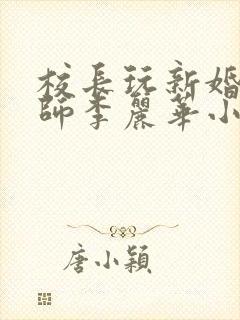 校長玩新婚
師李麗華小
唐小穎